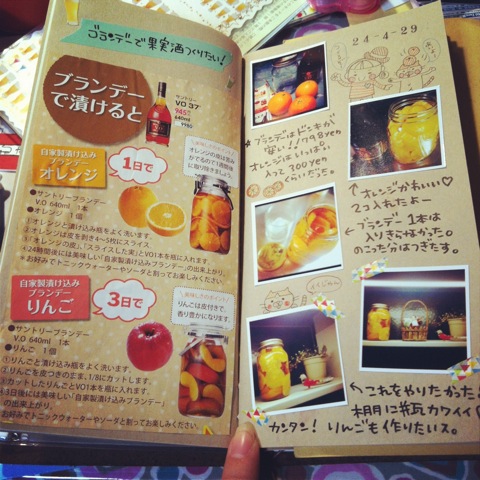 ブランデーで果実酒つくりたい!
ブランデー
で漬けると
サントリー
VO 37°
945円
640ml
¥980
自家製漬け込み
ブランデー
オレンジ
1日で
美味しさのポイント!
オレンジの皮は苦み
がでるので1週間後
に取り除きましょう。
●サントリーブランデー
V.O 640ml 1本
●オレンジ 1個
①オレンジと漬け込み瓶をよく洗います。
②オレンジは皮を剥き4~5枚にスライス。
③「オレンジの皮」、「スライスした実」とVO1本を瓶に入れます。
※24時間後には美味しい「自家製漬け込みブランデー」の出来上がり。
※お好みでトニックウォーターやソーダと割ってお楽しみください。
自家製漬け込み
ブランデー
りんご
3日で
美味しさのポイント!
りんごは皮付きで、
香り豊かになります。
●サントリーブランデー
V.O 640ml 1本
●りんご 1個
①りんごと漬け込み瓶をよく洗います。
②りんごを皮つきのまま、1/8にカットします。
③カットしたりんごとVO1本を瓶に入れます。
※3日後には美味しい「自家製漬け込みブランデー」
の出来上がり。
お好みでトニックウォーターやソーダと割ってお楽しみください。
24-4-29
*ブランデーはドンキが
安い!!798yen
オレンジはいっぱい
入って300yen
くらいだった。
↑オレンジかわいい♡
2コ入れたよー
←ブランデー1本は
入りきらなかった。
のこった分はつぎたす。
←これをやりたかった♪
棚に瓶カワイイ
カンタン!りんごも作りたいス。